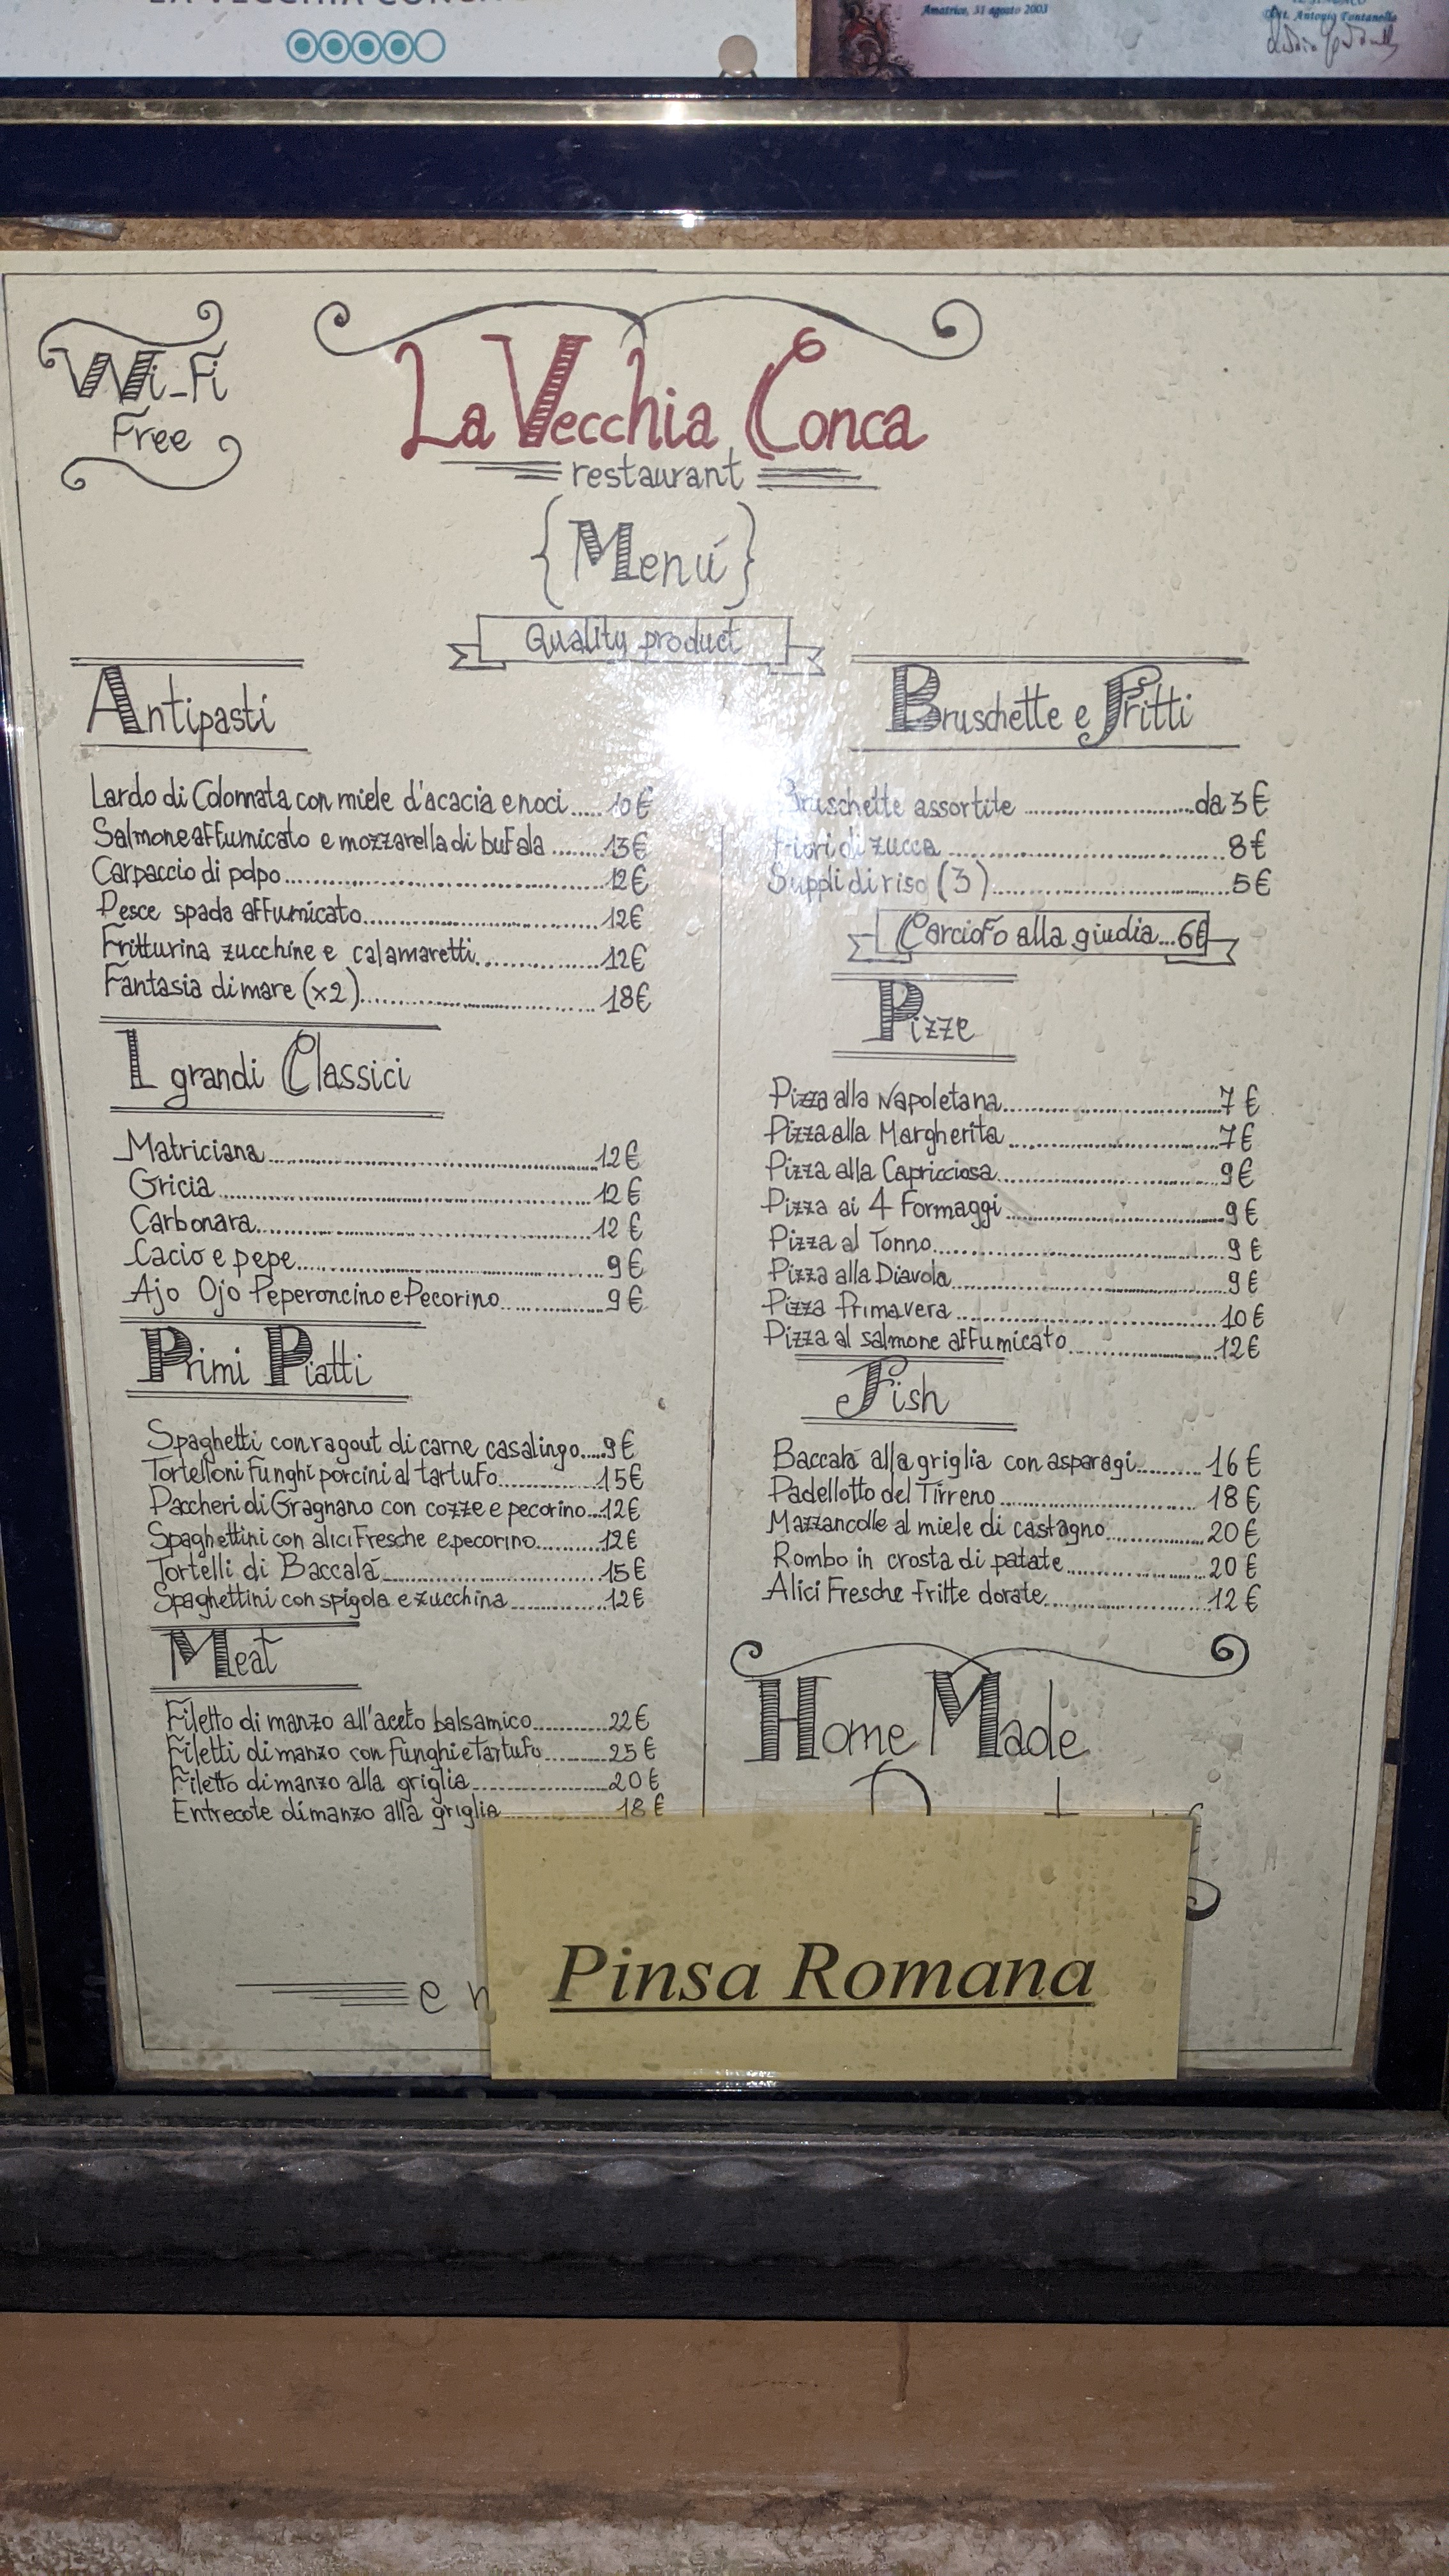 Amatrice, 31 agosto 2003
Antonio Fontanella
Wi-Fi
Free
La Vecchia Conca
restaurant
{Menú}
Quality product
Antipasti
Lardo di Colonnata con miele d'acacia e noci.....10€
Salmone affumicato e mozzarella di bufala........13€
Carpaccio di polpo...............12€
Pesce spada affumicato...............12€
Fritturina zucchine e calamaretti...............12€
Fantasia di mare (x2)...............18€
I grandi Classici
Matriciana...............12€
Gricia...............12€
Carbonara...............12€
Cacio e pepe...............9€
Ajo Ojo Peperoncino e Pecorino...............9€
Primi Piatti
Spaghetti con ragout di carne casalingo.....9€
Tortelloni funghi porcini al tartufo...............15€
Paccheri di Gragnano con cozze e pecorino....12€
Spaghettini con alici fresche e pecorino..........12€
Tortelli di Baccalá...............15€
Spaghettini con spigola e zucchina...............12€
Meat
Filetto di manzo all'aceto balsamico..........22€
Filetti di manzo con funghi e Tartufo..........25€
Filetto di manzo alla griglia...............20€
Entrecote di manzo alla griglia...............18€
Bruschette e Fritti
Bruschette assortite...............da 3€
Fiori di zucca...............8€
Suppli di riso (3)...............5€
Carciofo alla giudia...6€
Pizze
Pizza alla Napoletana...............7€
Pizza alla Margherita...............7€
Pizza alla Capricciosa...............9€
Pizza ai 4 Formaggi...............9€
Pizza al Tonno...............9€
Pizza alla Diavola...............9€
Pizza Primavera...............10€
Pizza al salmone affumicato...............12€
Fish
Baccalá alla griglia con asparagi..........16€
Padellotto del Tirreno...............18€
Mazzancolle al miele di castagno..........20€
Rombo in crosta di patate...............20€
Alici Fresche fritte dorate...............12€
Home Made
Pinsa Romana